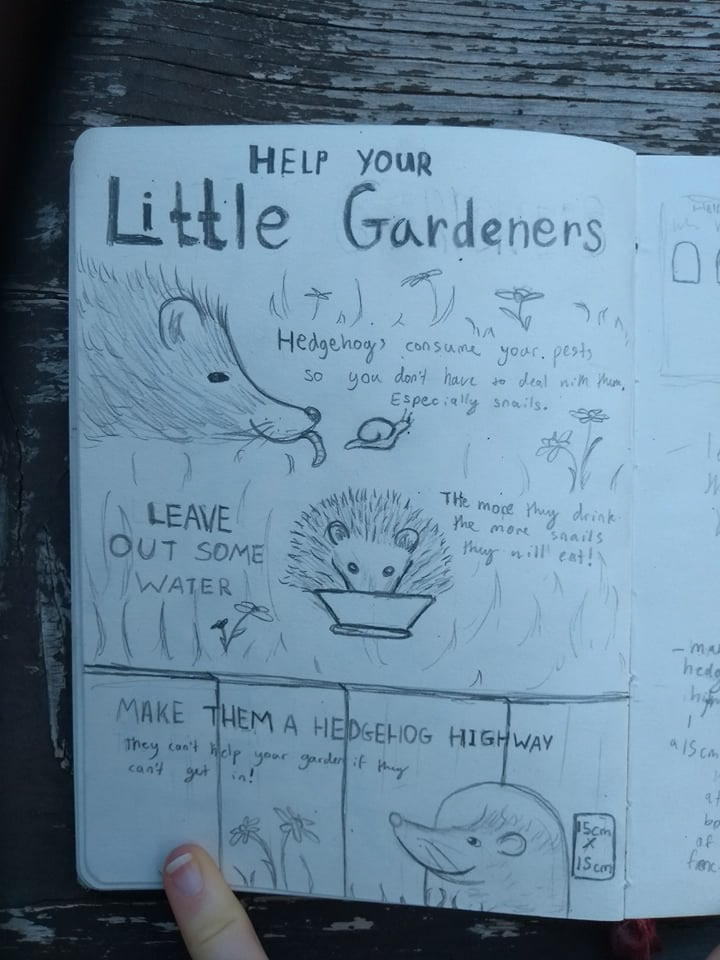 HELP YOUR
Little Gardeners
Hedgehogs consume your pests
so you don't have to deal with them.
Especially snails.
LEAVE
OUT SOME
WATER
The more they drink
the more snails
they will eat!
MAKE THEM A HEDGEHOG HIGHWAY
They can't help your garden if they
can't get in!
15cm
X
15cm
- ma
hedg
a 15cm
of
fenc